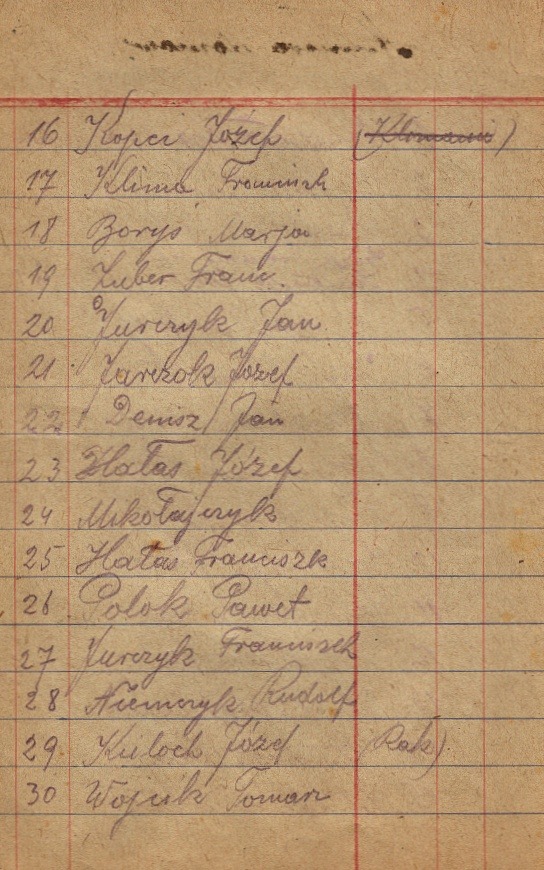 16 Kopeć Józef
17 Klima Franciszek
18 Borys Marja
19 Zuber Franc.
20 Jurczyk Jan
21 Jarczok Józef
22 Denisz Jan
23 Hałas Józef
24 Mikołajczyk
25 Hałas Franciszk
26 Polok Paweł
27 Jurczyk Franciszek
28 Niemczyk Rudolf
29 Kieloch Józef (Rak)
30 Wojcik Tomasz